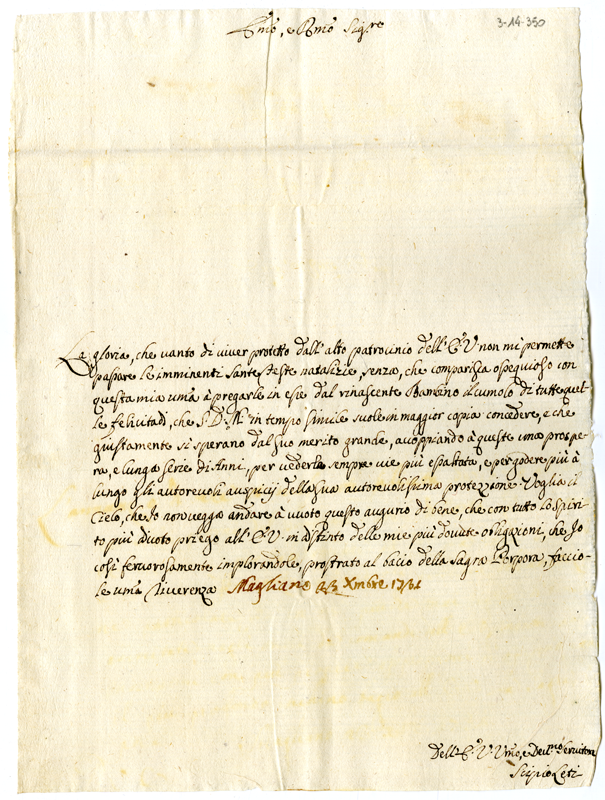 3-14-350
Emo, e Rmo Sig.re
La gloria, che vanto di viver protetto dall'alto patrocinio dell'E.V. non mi permette
passare le imminenti Sante Feste natalizie, senza, che comparisca ossequioso con
questa mia uma à pregarle in esse dal rinascente Bambino il cumolo di tutte quel-
le felicitadi, che S.D.M. in tempo simile suole in maggior copia concedere, e che
giustamente si sperano dal suo merito grande, accoppiando à queste una prospe-
ra, e lunga serie di Anni, per vederla sempre vie più esaltata, e per godere più à
lungo gli autorevoli auspicij della sua autorevolissima protezzione. Voglia il
Cielo, che Io non vegga andare à vuoto questo augurio di bene, che con tutto lo spiri-
to più divoto priego all'E.V. in adstinto delle mie più dovute obligazioni, che Io
così fervorosamente implorandole, prostrato al bacio della Sagra Porpora, faccio-
le uma riverenza Magliano Xmbre
Dell'E.V. Vmo, e Devmo Servitore
Scipio Leti